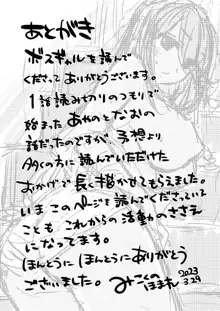 あとがき
ボスギャルを読んで
くださってありがとうございます。
1話読み切りのつもりで
始まったあやのとなおの
話だったのですが、予想より
多くの方に読んでいただけた
おかげで長く描かせてもらえました。
いまこのページを読んでくださっている
ことも これからの活動のささえ
になってます。
ほんとうに ほんとうにありがとう
ございました。
2023
3.29